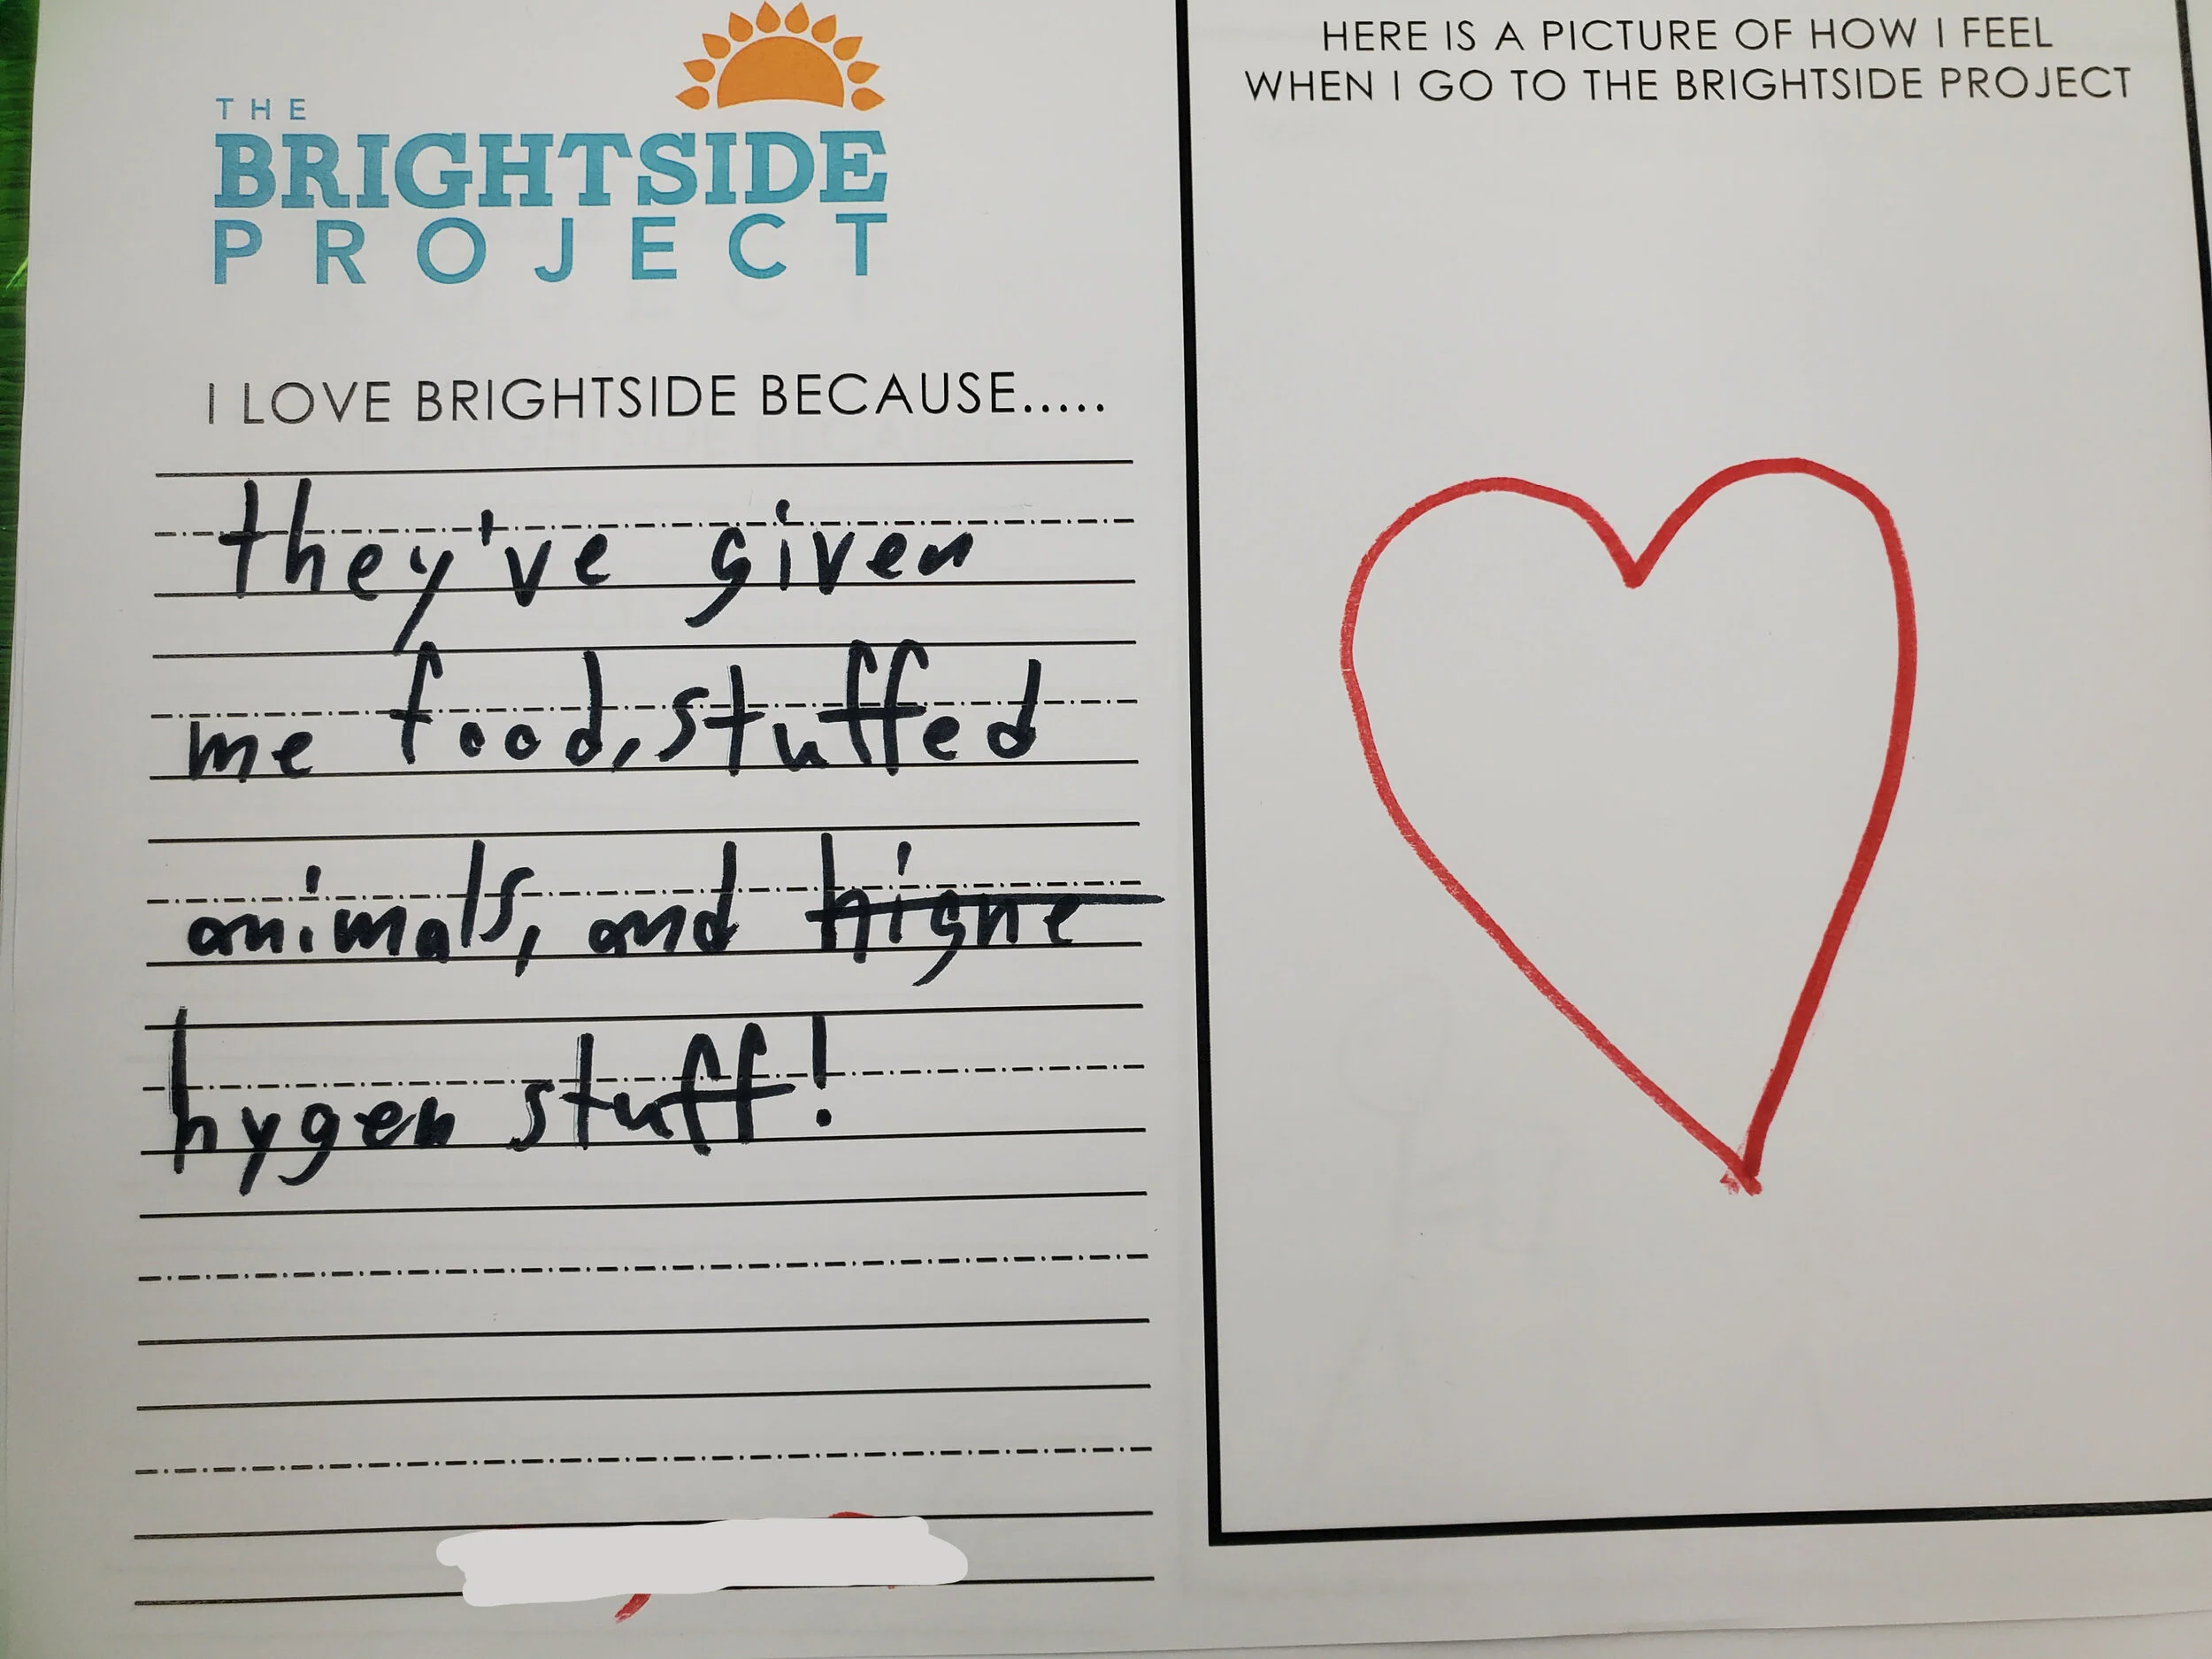 THE
BRIGHTSIDE
PROJECT
I LOVE BRIGHTSIDE BECAUSE.....
they've given
me food, stuffed
animals, and higne
hygen stuff!
HERE IS A PICTURE OF HOW I FEEL
WHEN I GO TO THE BRIGHTSIDE PROJECT